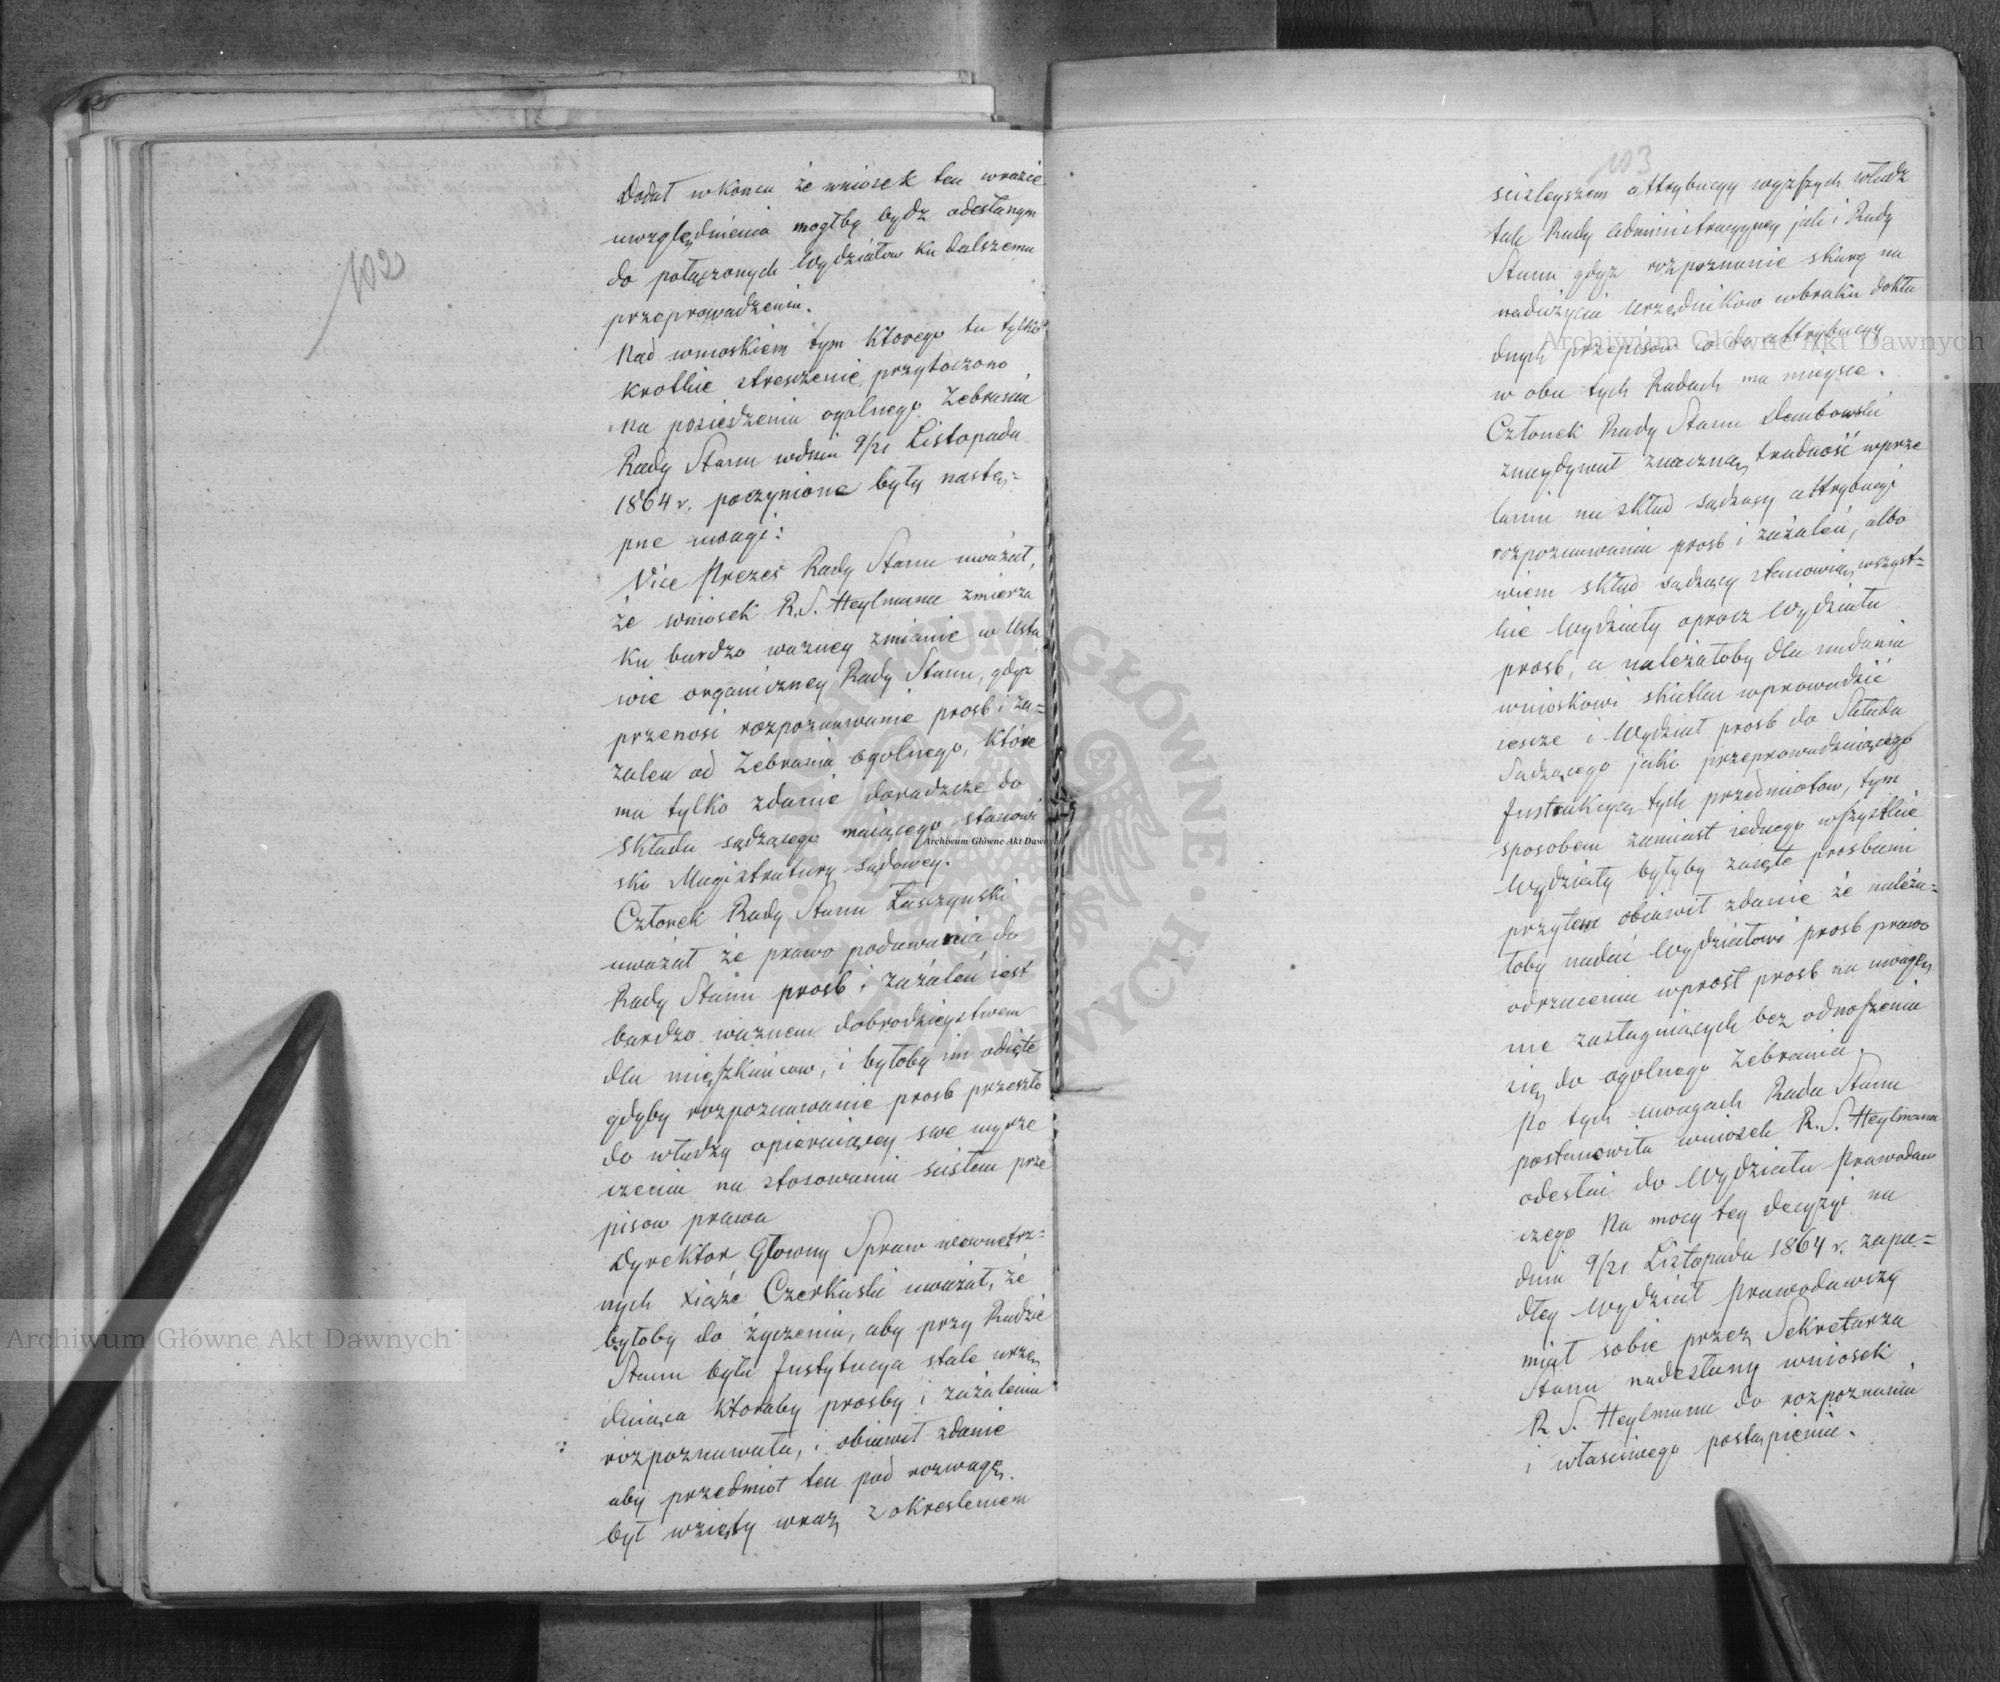 102
Dodał w końcu że wniosek ten w razie
uwzględnienia mogłby bydź odesłanym
do połączonych Wydziałow ku dalszemu
przeprowadzeniu.
Nad wnioskiem tym ktorego tu tylko
krotkie streszczenie przytoczono
na posiedzeniu ogolnego Zebrania
Rady Stanu w dniu 9/21 Listopada
1864 r. poczynione były nastę=
pne uwagi:
Vice Prezes Rady Stanu uważał,
że wniosek R. S. Heylmana zmierza
ku bardzo ważney zmianie w Usta
wie organiczney Rady Stanu, gdyż
przenosi rozpoznawanie prosb i za=
żaleń od Zebrania ogolnego, które
ma tylko zdanie doradzcze do
składu sądzącego maiącego stanowi
sko Magistratury sądowey.
Członek Rady Stanu Łaszczyński
uważał że prawo podawania do
Rady Stanu prosb i zażaleń iest
bardzo ważnem dobrodzieystwem
dla mieszkańcow, i byłoby im odięte
gdyby rozpoznawanie prosb przeszło
do władzy opieraiącey swe wyrze
czenia na stosowaniu scisłem prze
pisow prawa
Dyrektor Głowny Spraw wewnętrz=
nych Xiąże Czerkaski uważał, że
byłoby do życzenia, aby przy Radzie
Stanu była Instytucya stale urzę
duiąca ktoraby prosby i zażalenia
rozpoznawała, i obiawił zdanie
aby przedmiot ten pod rozwagę
był wzięty wraz z okresleniem
103
scisleyszem attrybucyy wyższych władz
tak Rady Administracyyney jak i Rady
Stanu gdyż rozpoznanie skarg na
nadużycia urzędnikow w braku dokła
dnych przepisow co do attrybucyy
w obu tych Radach ma mieysce.
Członek Rady Stanu Dembowski
znaydywał znaczną trudność w prze
laniu na skład sądzący attrybucyi
rozpoznawania prosb i zażaleń, albo
wiem skład sądzący stanowią wszyst=
kie Wydziały oprocz Wydziału
prosb, a należałoby dla nadania
wnioskowi skutku wprowadzić
ieszcze i Wydział prosb do Składu
Sadzącego jako przeprowadzaiącego
Instrukcyą tych przedmiotow, tym
sposobem zamiast iednego wszystkie
Wydziały byłyby zaięte prosbami
przytem obiawił zdanie że należa=
łoby nadać Wydziałowi prosb prawo
odrzucenia wprost prosb na uwagę
nie zasługuiących bez odnoszenia
się do ogolnego Zebrania.
Po tych uwagach Rada Stanu
postanowiła wniosek R. S. Heylmana
odesłać do Wydziału Prawodaw
czego Na mocy tey decyzyi na
dniu 9/21 Listopada 1864 r. zapa=
dłey Wydział Prawodawczy
miał sobie przez Sekretarza
Stanu nadesłany wniosek
R. S. Heylmana do rozpoznania
i własciwego postąpienia.
Archiwum Główne Akt Dawnych
Archiwum Główne Akt Dawnych
Archiwum Główne Akt Dawnych
ARCHIWUM GŁÓWNE · AKT DAWNYCH ·